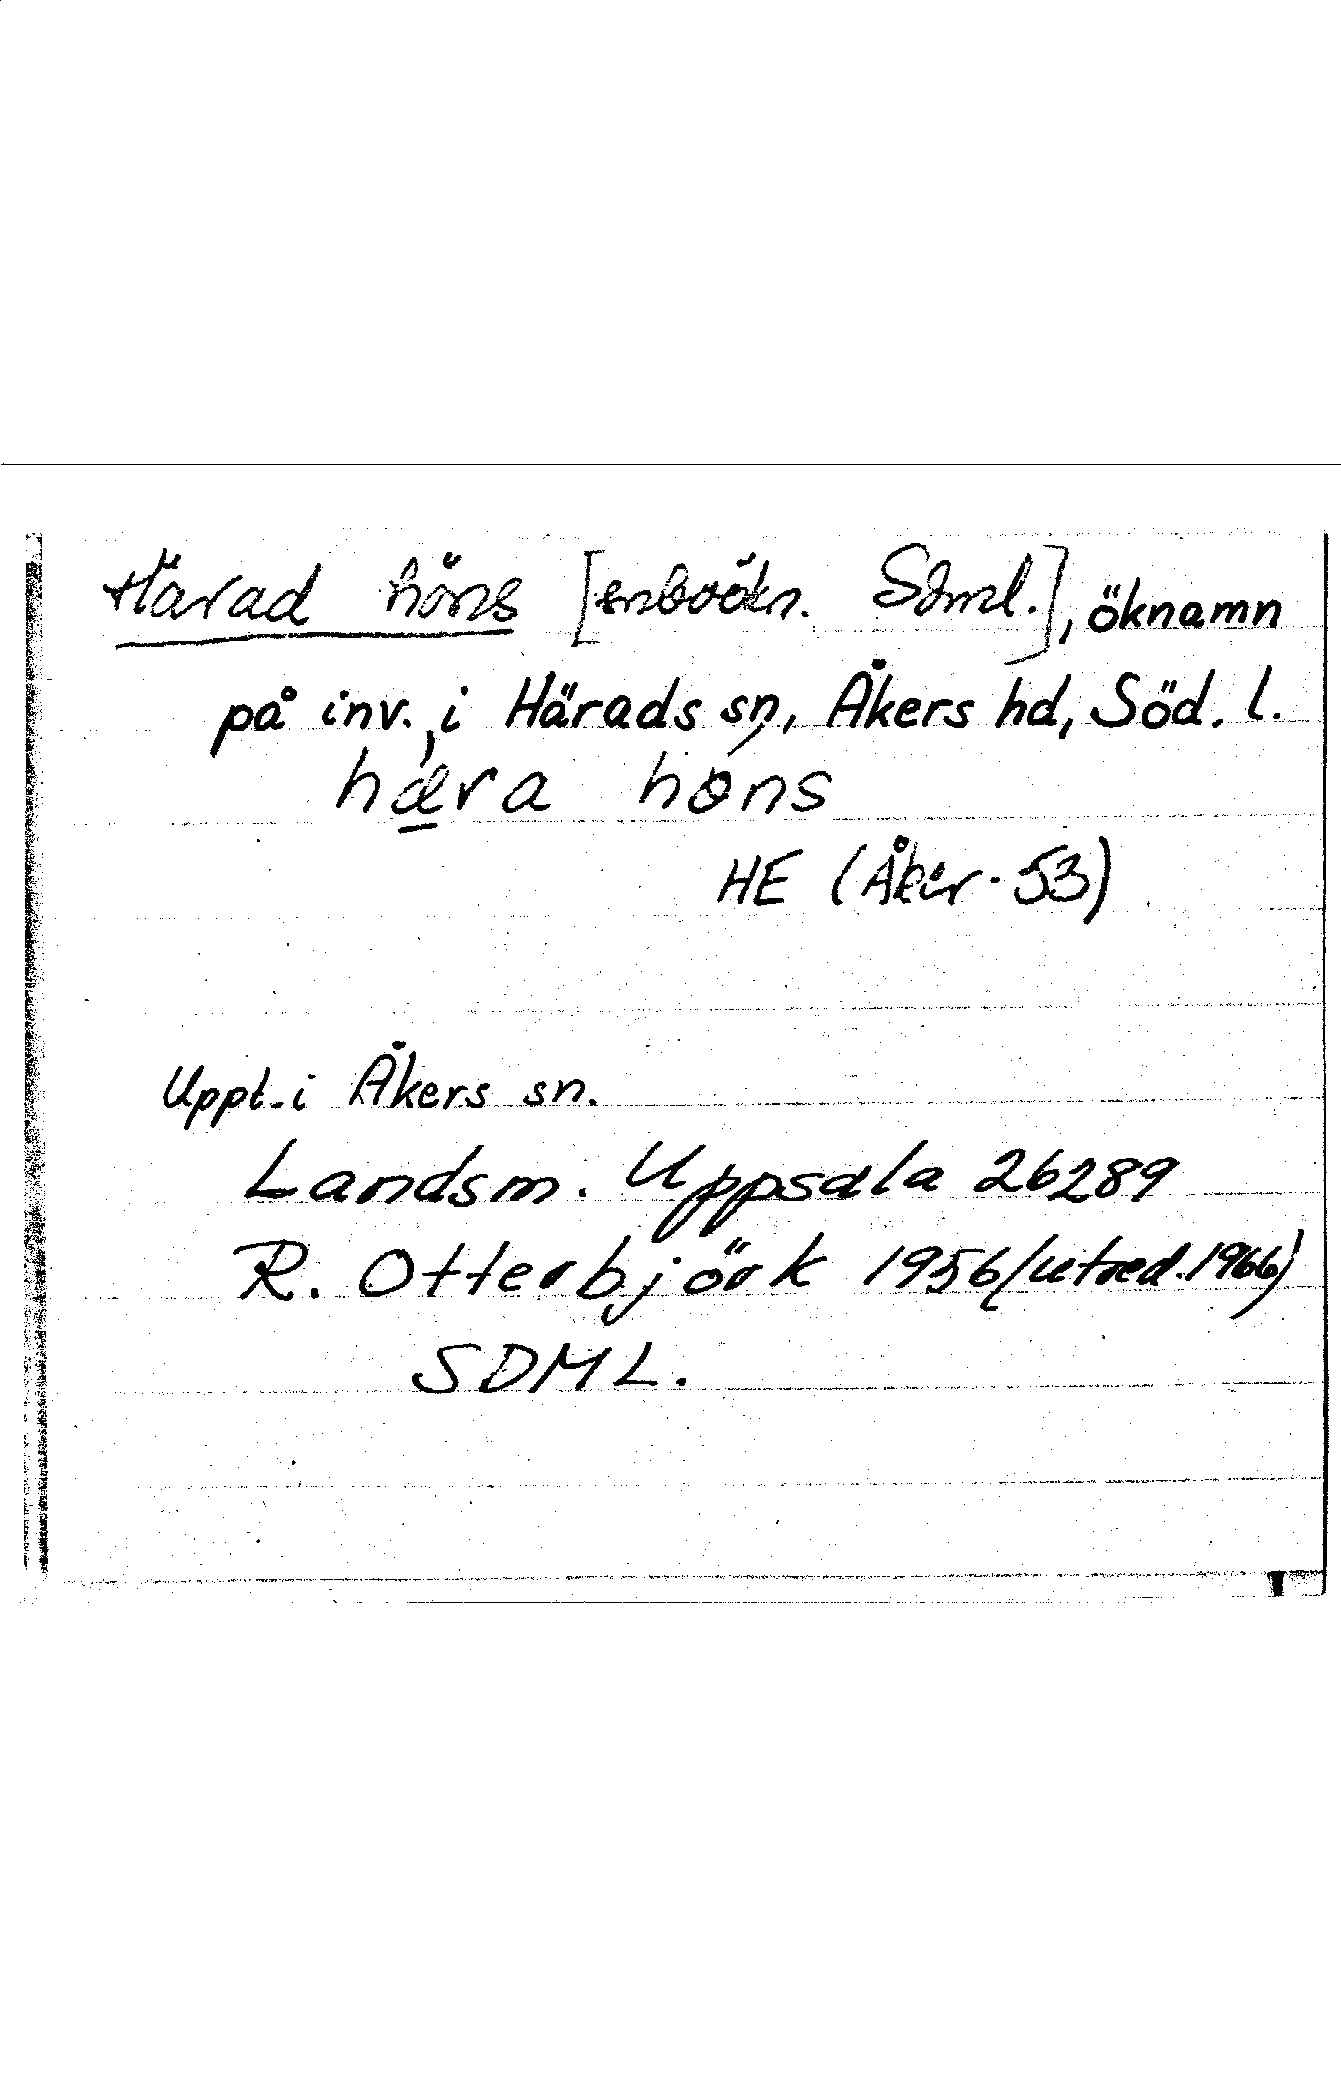 Härad höns [inboökn. Sdml.], öknamn
på inv. i Härads sn, Åkers hd, Söd. l.
hæra høns
HE (Åker. 53)
Uppt. i Åkers sn.
Landsm. Uppsala 26289
R. Otterbjörk 1956 (utred. 1966)
SDML.